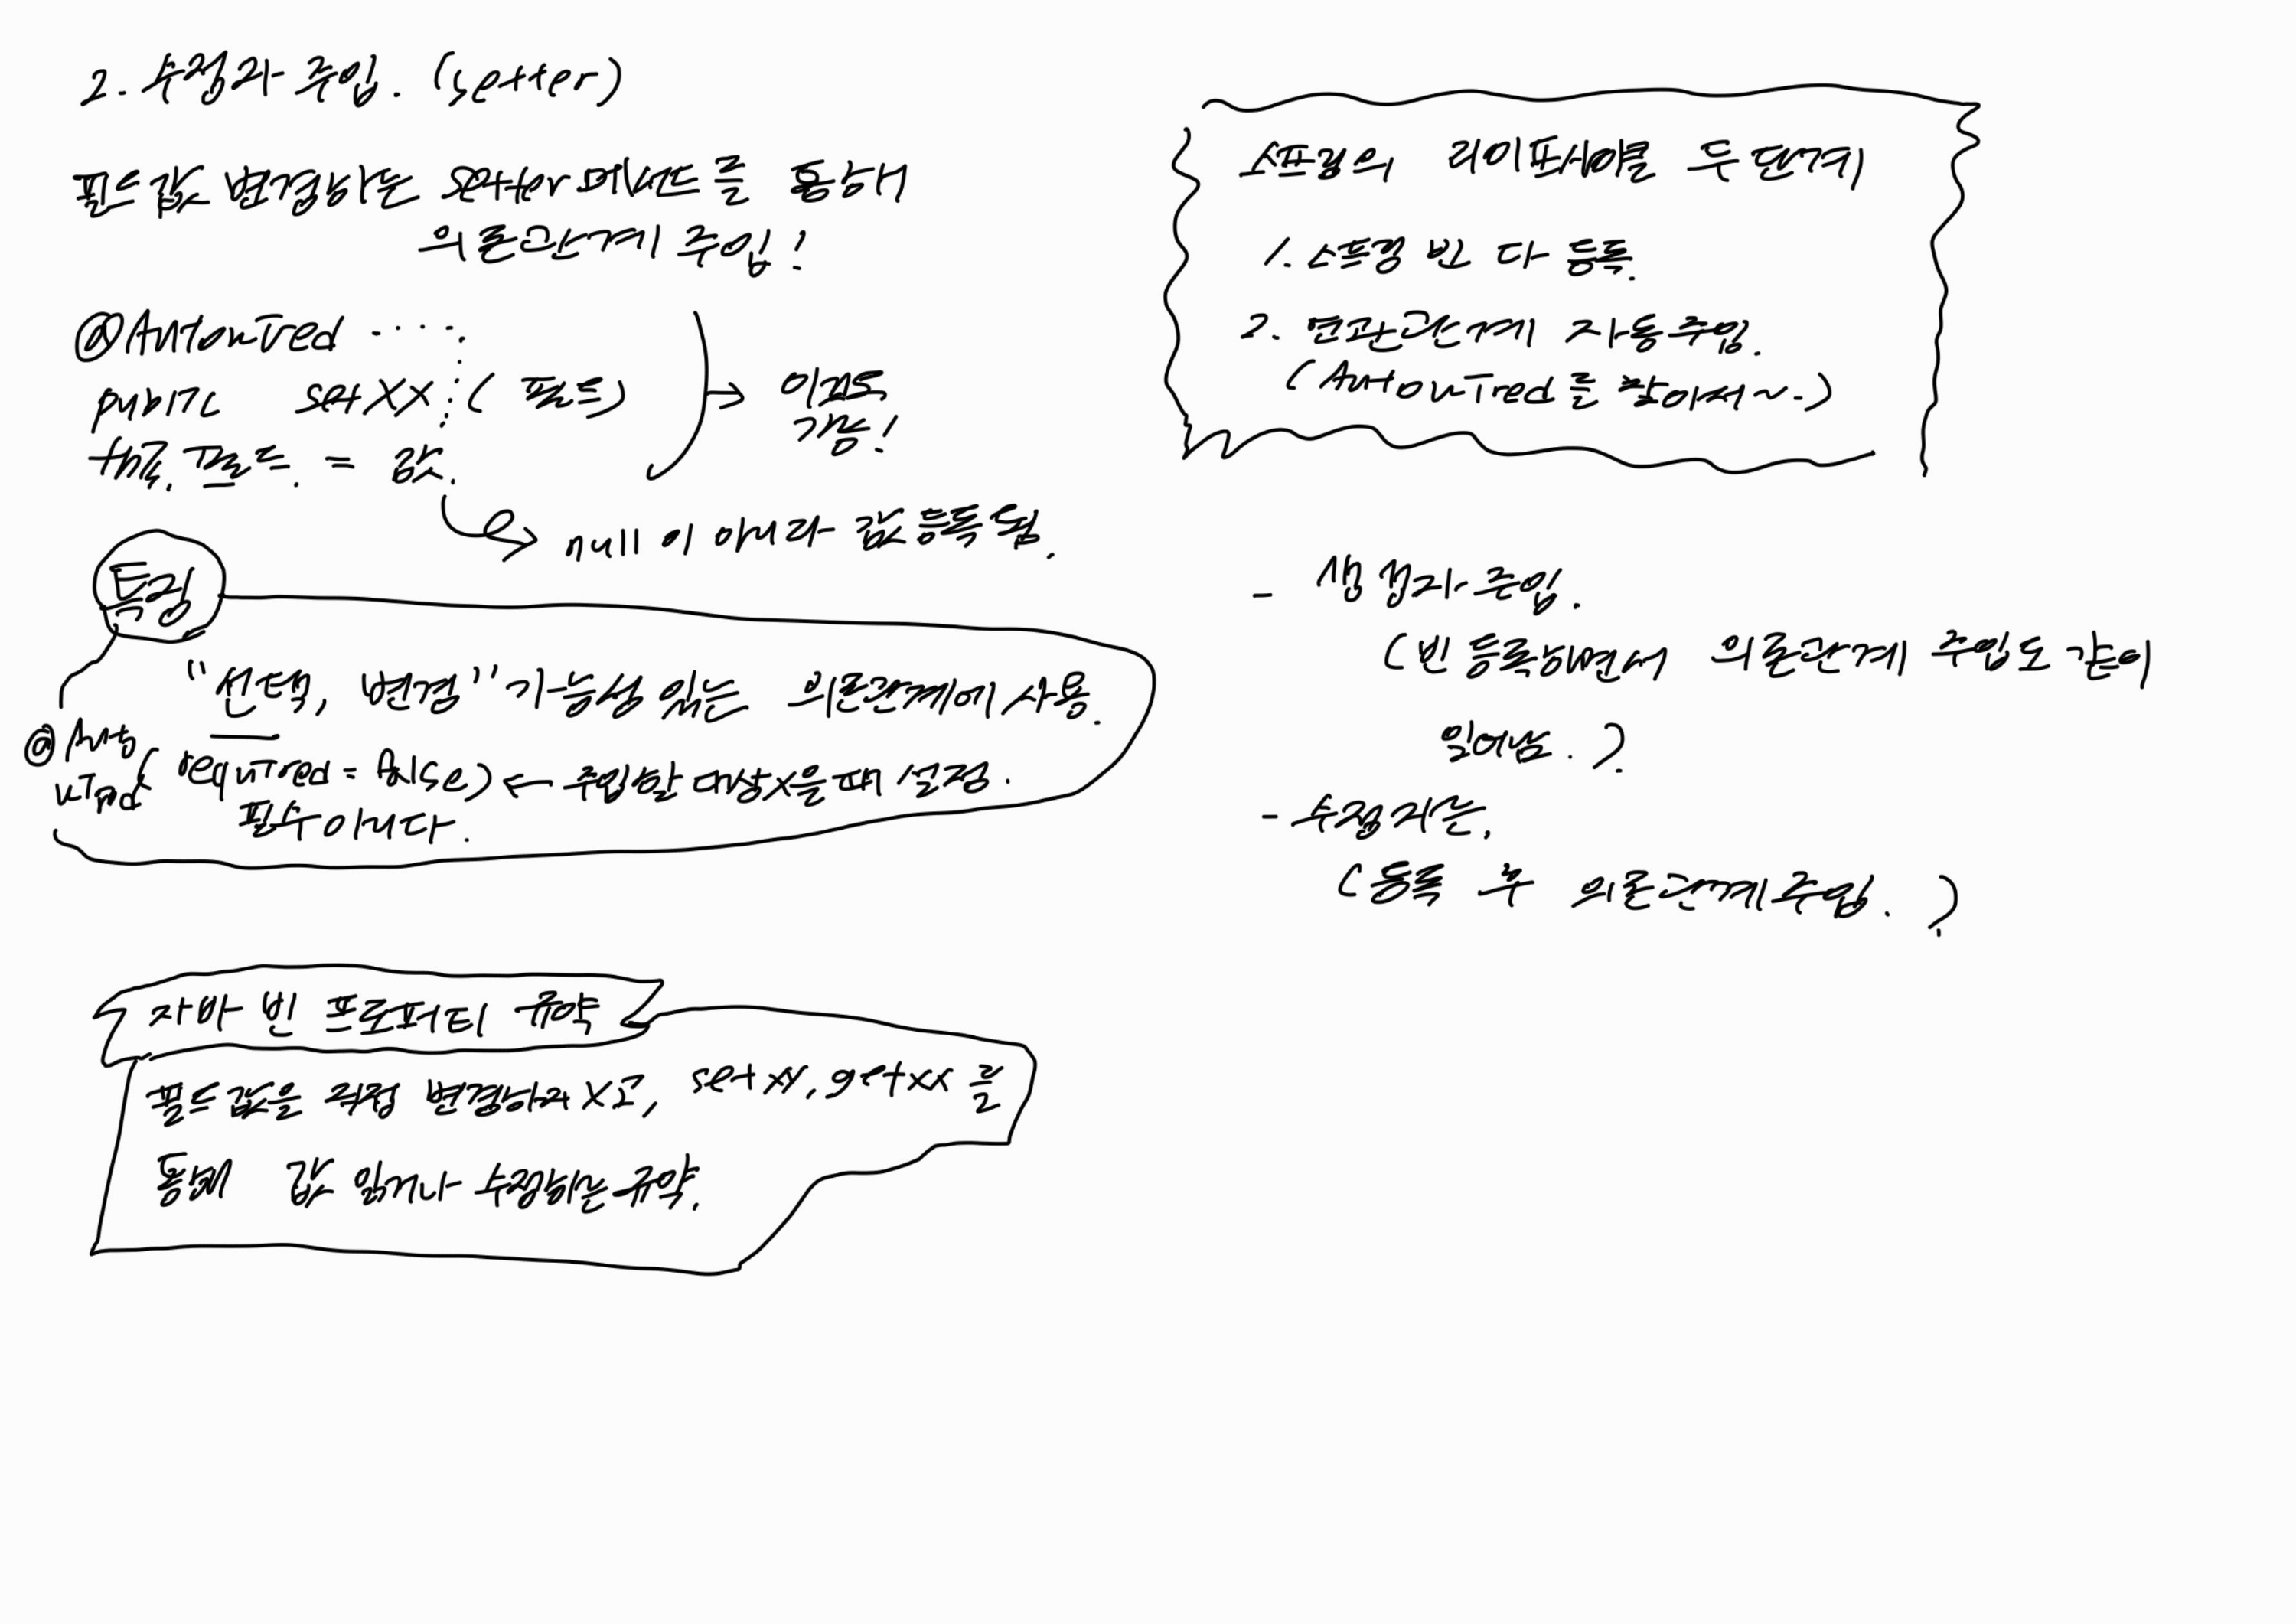 2. 수정자 주입. (setter)
필드값 변경하는 setter 메서드를 통해서
의존관계 주입!
@Autowired
public setXX (필드)
this.필드. = 값.
이것도
가능!
null이 아니라 값 등록 됨.
특징
"선택, 변경" 가능성 있는 의존관계에 사용.
@Auto
wired( required = false) ← 주입할 대상 X을 때 설정.
필수 아니다.
자바 빈 프로퍼티 규약
필드 값을 직접 변경하지 X고, setxy, getxx 를
통해 값 읽거나 수정하는 규약.
스프링의 라이프사이클 두 단계
1. 스프링 빈 다 등록.
2. 연관관계 자동 주입.
(Autowired를 찾아서~.)
- 생성자 주입.
(빈 등록하면서 의존관계 주입도 같이
일어남.)
- 수정자는,
(등록 후 의존관계 주입.)